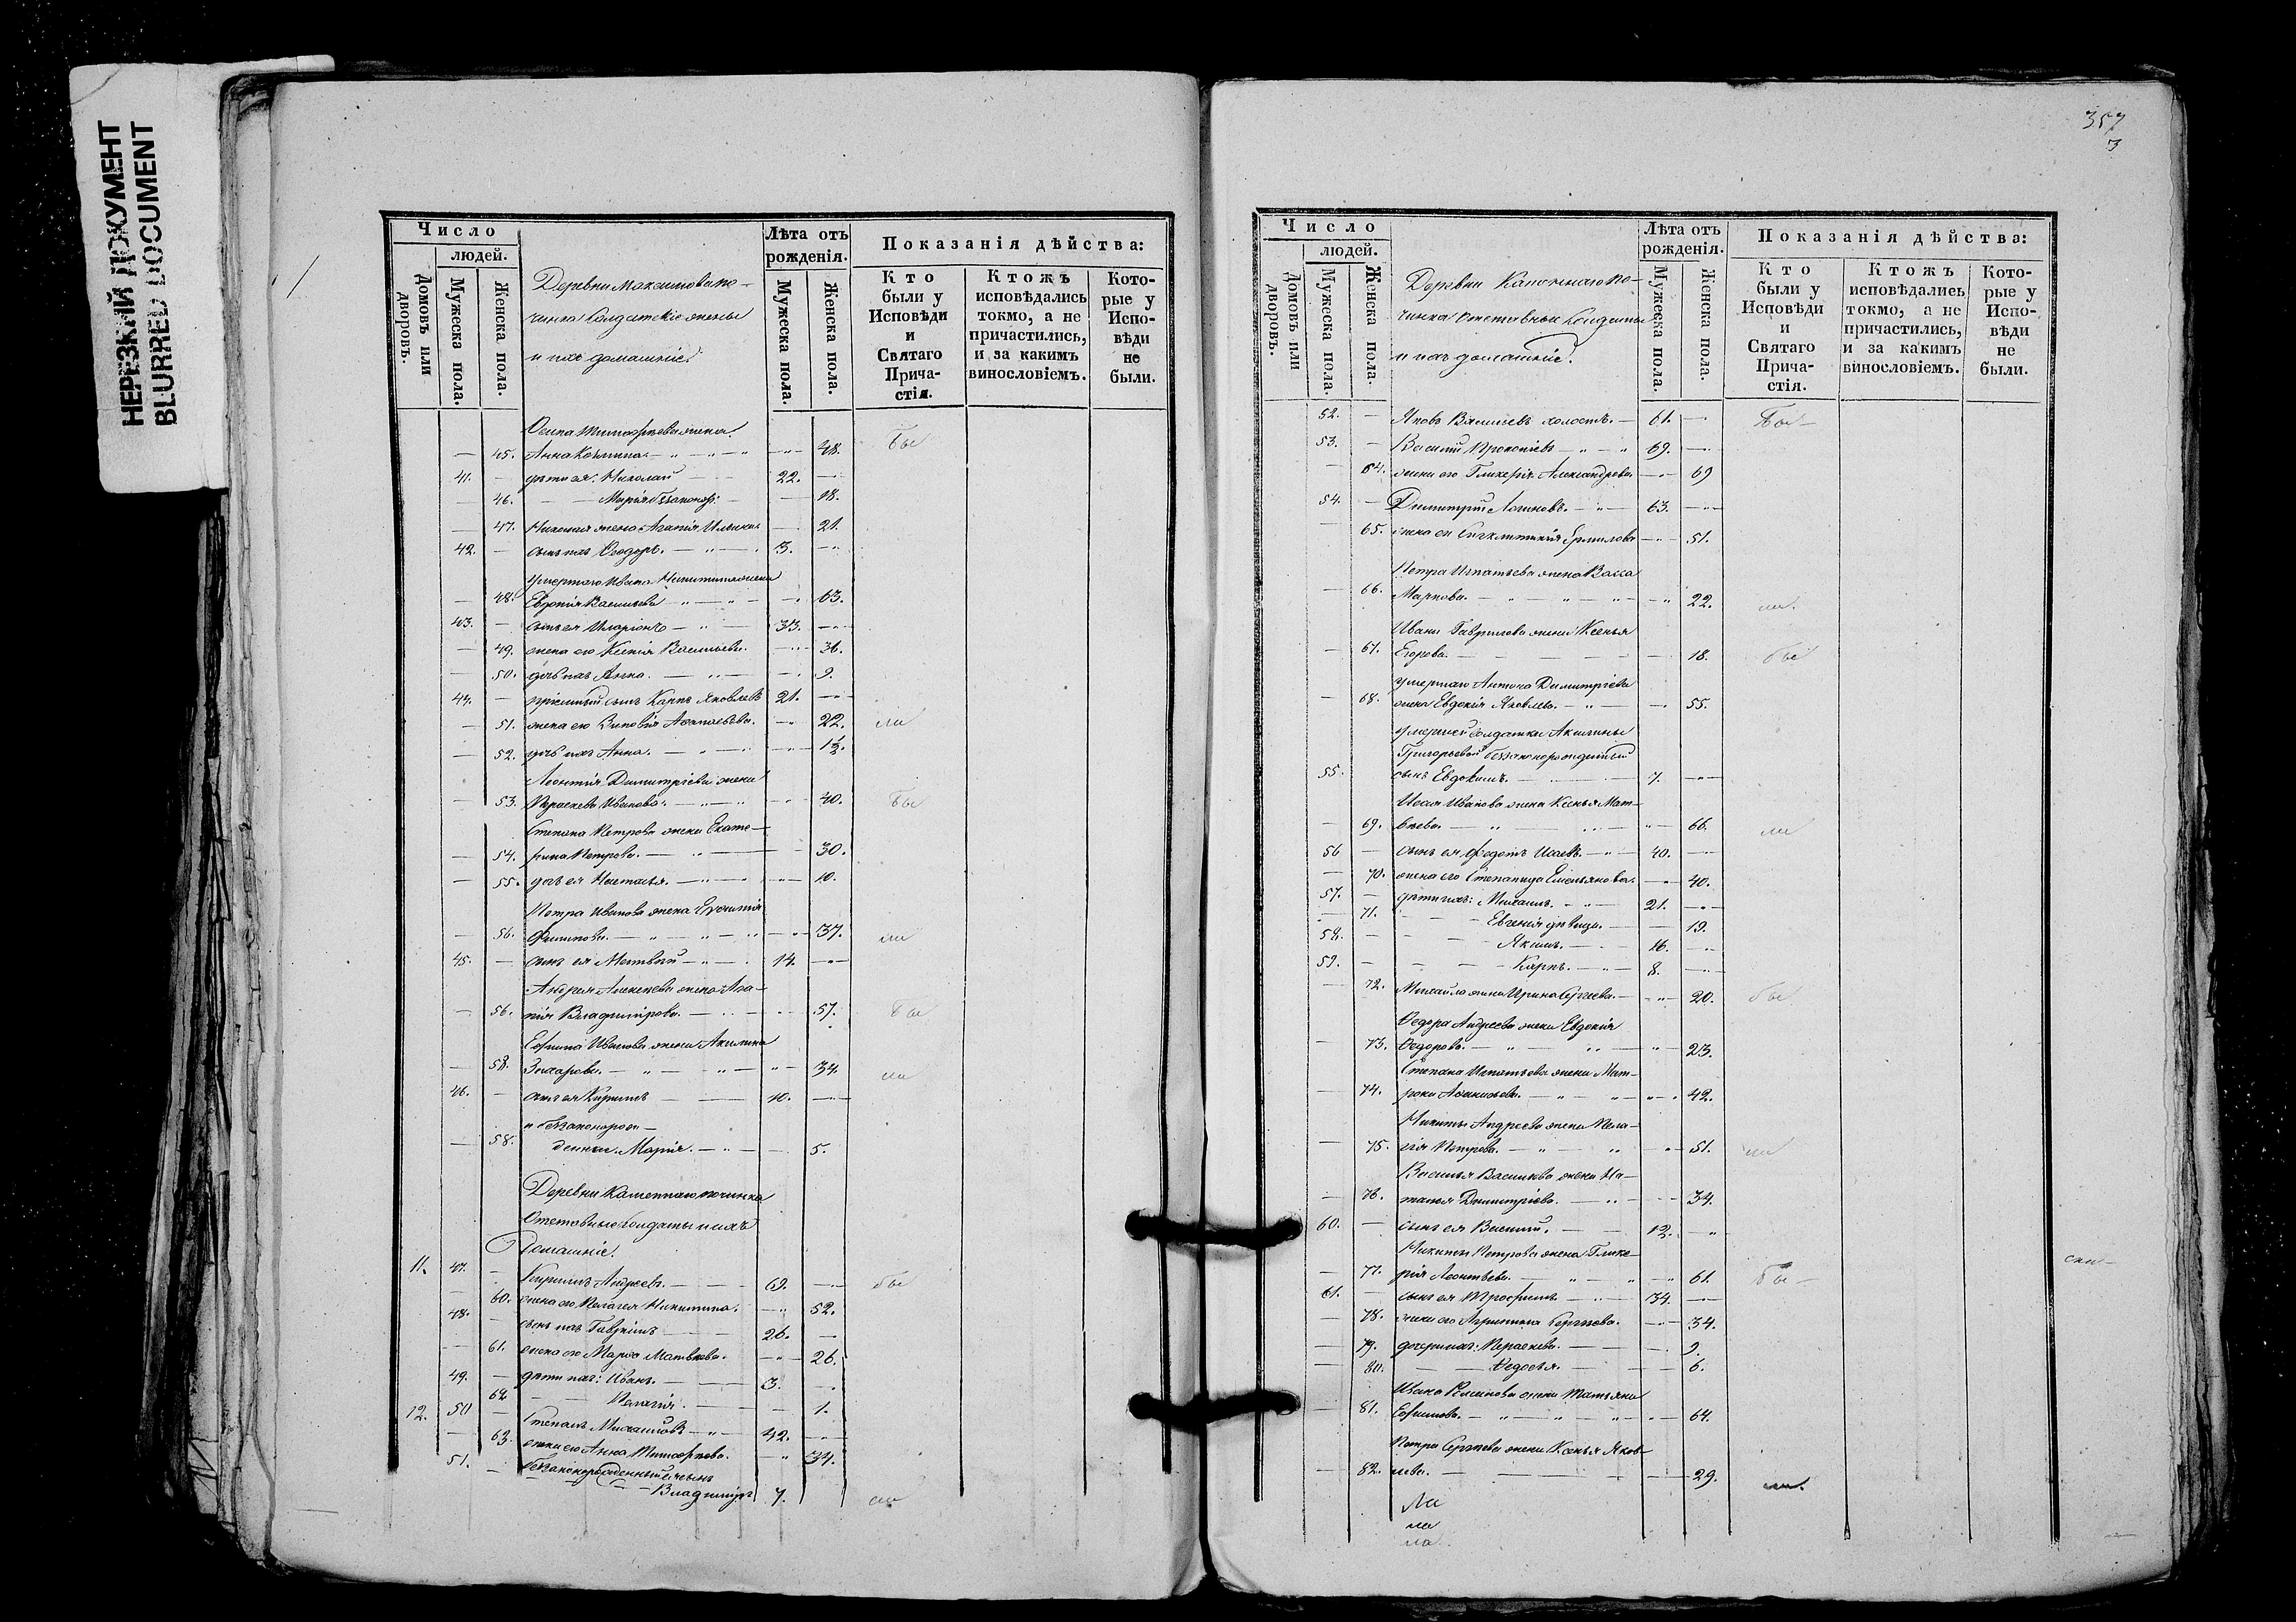 НЕРЕЗКИЙ ДОКУМЕНТ
BLURRED DOCUMENT
Число
людей.
Домовъ или дворовъ.
Мужеска пола.
Женска пола.
Деревни Максимова по-
чинка Солдатскіе жены
и ихъ домашніе.
Лѣта отъ рожденія.
Мужеска пола.
Женска пола.
Показанія дѣйства:
Кто были у Исповѣди и Святаго Прича-стія.
Ктожъ исповѣдались токмо, а не причастились, и за какимъ винословіемъ.
Кото-рые у Испо-вѣди не были.
Осипа Тимофѣева жена
45. Анна Козмина 48. Бы
41. дѣти ея: Николай 22.
46. Марія 18.
47. Николая жена Агапія Ильина 21.
42. сынъ ихъ Ѳеодоръ. 3.
умершаго Ивана Никитина жена
48. Евдокія Васильева 63.
43. сынъ ея Иларіонъ 33.
49. жена его Ксенія Васильева. 36.
50. дочь ихъ Анна. 9.
44. пріемный сынъ Карпъ Яковлевъ 21.
51. жена его Зиновія Аѳанасьева. 22. ли
52. дочь ихъ Анна. 1½.
Леонтія Димитріева жена
53. Параскева Иванова. 40. Бы
Степана Петрова жена Екате-
54. рина Петрова. 30.
55. дочь ея Наталья. 10.
Петра Иванова жена
56. Филипова. 37. ли
45. сынъ ея Матвѣй 14.
Андрея Алексѣева жена Ага-
56. пія Владимірова. 57. Бы
Ефима Иванова жена Акилина
58. Захарова. 34. ли
46. сынъ ея Кирилъ 10.
и беззаконорож-
58. денная Марія. 5.
Деревни Каменнаго починка
Отставные Солдаты и ихъ
Домашніе.
11. 47. Кирилъ Андреевъ. 69. бы
60. жена его Пелагея Никитина. 52.
48. сынъ ихъ Гавріилъ 26.
61. жена его Марѳа Матвѣева. 26.
49. дѣти ихъ: Иванъ. 3.
62 Пелагія. 1.
12. 50 Степанъ Михайловъ 42.
63. жена его Анна Тимофѣева. 34.
51. беззаконорожденный ея сынъ
Владиміръ 7. ли
357
3
Число
людей.
Домовъ или дворовъ.
Мужеска пола.
Женска пола.
Деревни Каменнаго по-
чинка отставные Солдаты
и ихъ домашніе.
Лѣта отъ рожденія.
Мужеска пола.
Женска пола.
Показанія дѣйства:
Кто были у Исповѣди и Святаго Прича-стія.
Ктожъ исповѣдались токмо, а не причастились, и за какимъ винословіемъ.
Кото-рые у Испо-вѣди не были.
52. Яковъ Васильевъ холостъ. 61. Бы
53. Василій Прокопіевъ 69.
64. жена его Гликерія Александрова 69
54. Димитрій Логиновъ. 63.
65. жена его Синклитикія Ермилова 51.
Петра Игнатьева жена Васса
66. Маркова. 22. ли.
Ивана Гаврилова жена Ксенья
67. Егорова. 18. бы
умершаго Антона Димитріева
68. жена Евдокія Яковлева. 55.
умершей солдатки Акилины
Григорьевой беззаконорожденный
55. сынъ Евдокимъ. 7.
Исаія Иванова жена Ксенья Мат-
69. вѣева. 66. ли
56 сынъ ея Федотъ Исаевъ. 40.
70. жена его Степанида Емельянова. 40.
57. дѣти ихъ: Михаилъ. 21.
71. Евгенія дѣвица. 19.
58. Якимъ. 16.
59. Карпъ. 8.
72. Михайла жена Ирина Сергеева. 20. бы
Ѳедора Андреева жена Евдокія
73. Ѳедорова. 23.
Степана Игнатьева жена Мат-
74. рона Аѳанасьева. 42.
Никиты Андреева жена Пела-
75. гія Петрова. 51. ли
Василья Васильева жена На-
76. талья Димитріева. 34.
60. сынъ ея Василій. 12.
Никиты Петрова жена Глике-
77. рія Леонтьева. 61. Бы
61. сынъ ея Трофимъ. 34.
78. жена его Агрипина Сергѣева. 34.
79. дочери ихъ: Параскева. 9.
80. Ѳедосья. 6.
Ивана жена Татьяна
81. Ефимова. 64.
Петра Сергѣева жена Ксенья Яков-
82. лева. 29. ли.
Ли
ли
ли